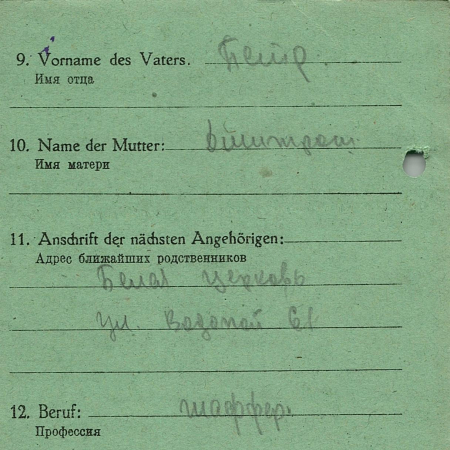 9. Vorname des Vaters.
Имя отца
10. Name der Mutter:
Имя матери
11. Anschrift der nächsten Angehörigen:
Адрес ближайших родственников
Белая церковь
ул. Водопой 61
12. Beruf: шаффер.
Профессия